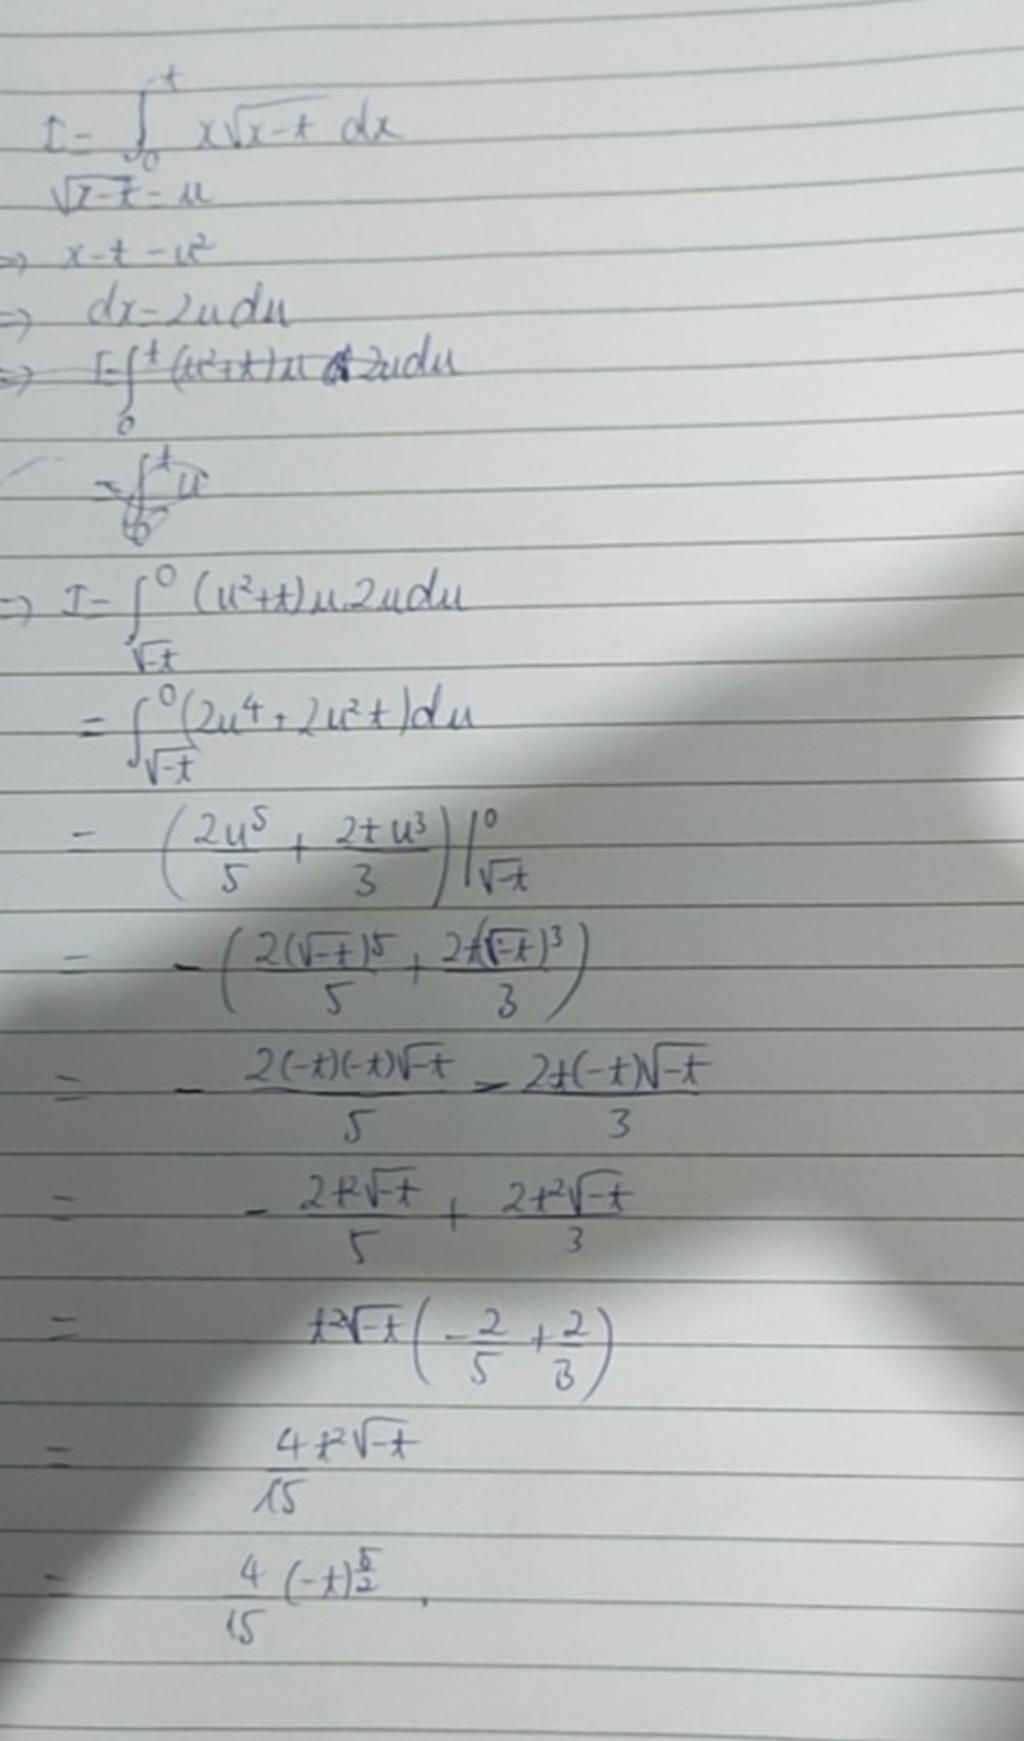 I = ∫₀ᵗ x√(x-t) dx
√(x-t) = u
=> x-t = u²
=> dx = 2udu
=> I = ∫₀ᵗ (u²+t)u 2udu
= ∫₀ᵗ u
=> I = ∫_{√-t}^{0} (u²+t)u.2udu
= ∫_{√-t}^{0} (2u⁴ + 2u²t)du
= (2u⁵/5 + 2tu³/3)|_{√-t}^{0}
= -(2(√-t)⁵/5 + 2t(√-t)³/3)
= - 2(-t)(-t)√-t/5 - 2t(-t)√-t/3
= - 2t²√-t/5 + 2t²√-t/3
= t²√-t(-2/5 + 2/3)
= 4t²√-t/15
= 4/15 (-t)^{5/2}.